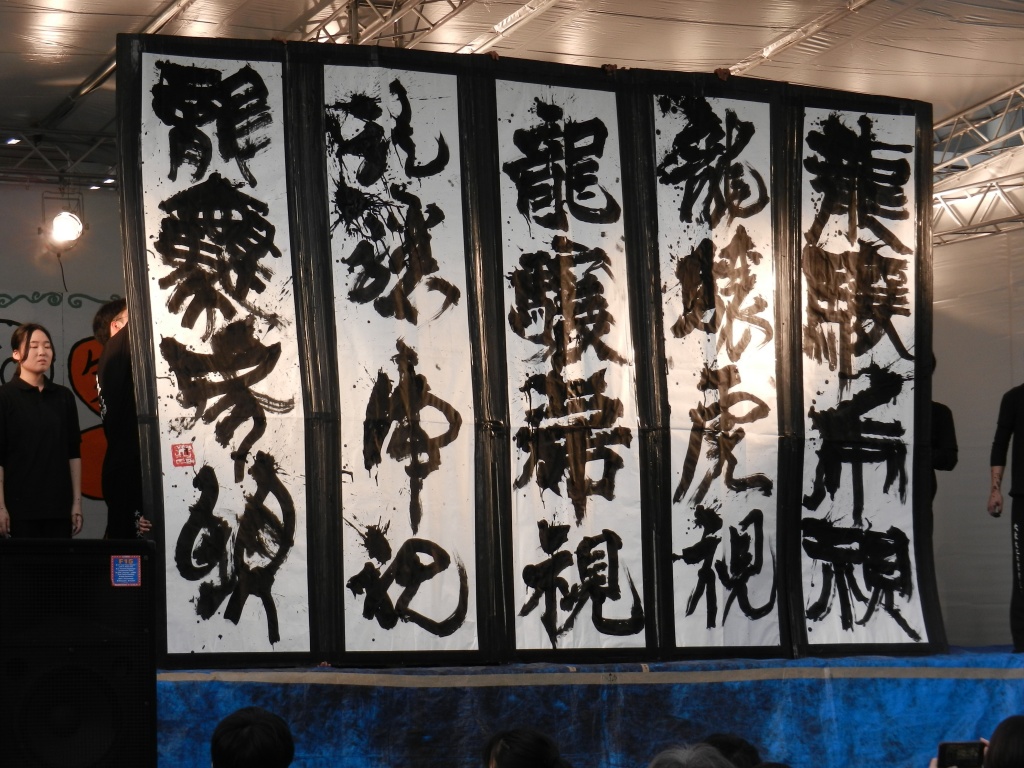 龍驤虎視
龍驤虎視
龍驤虎視
龍驤虎視
龍驤虎視